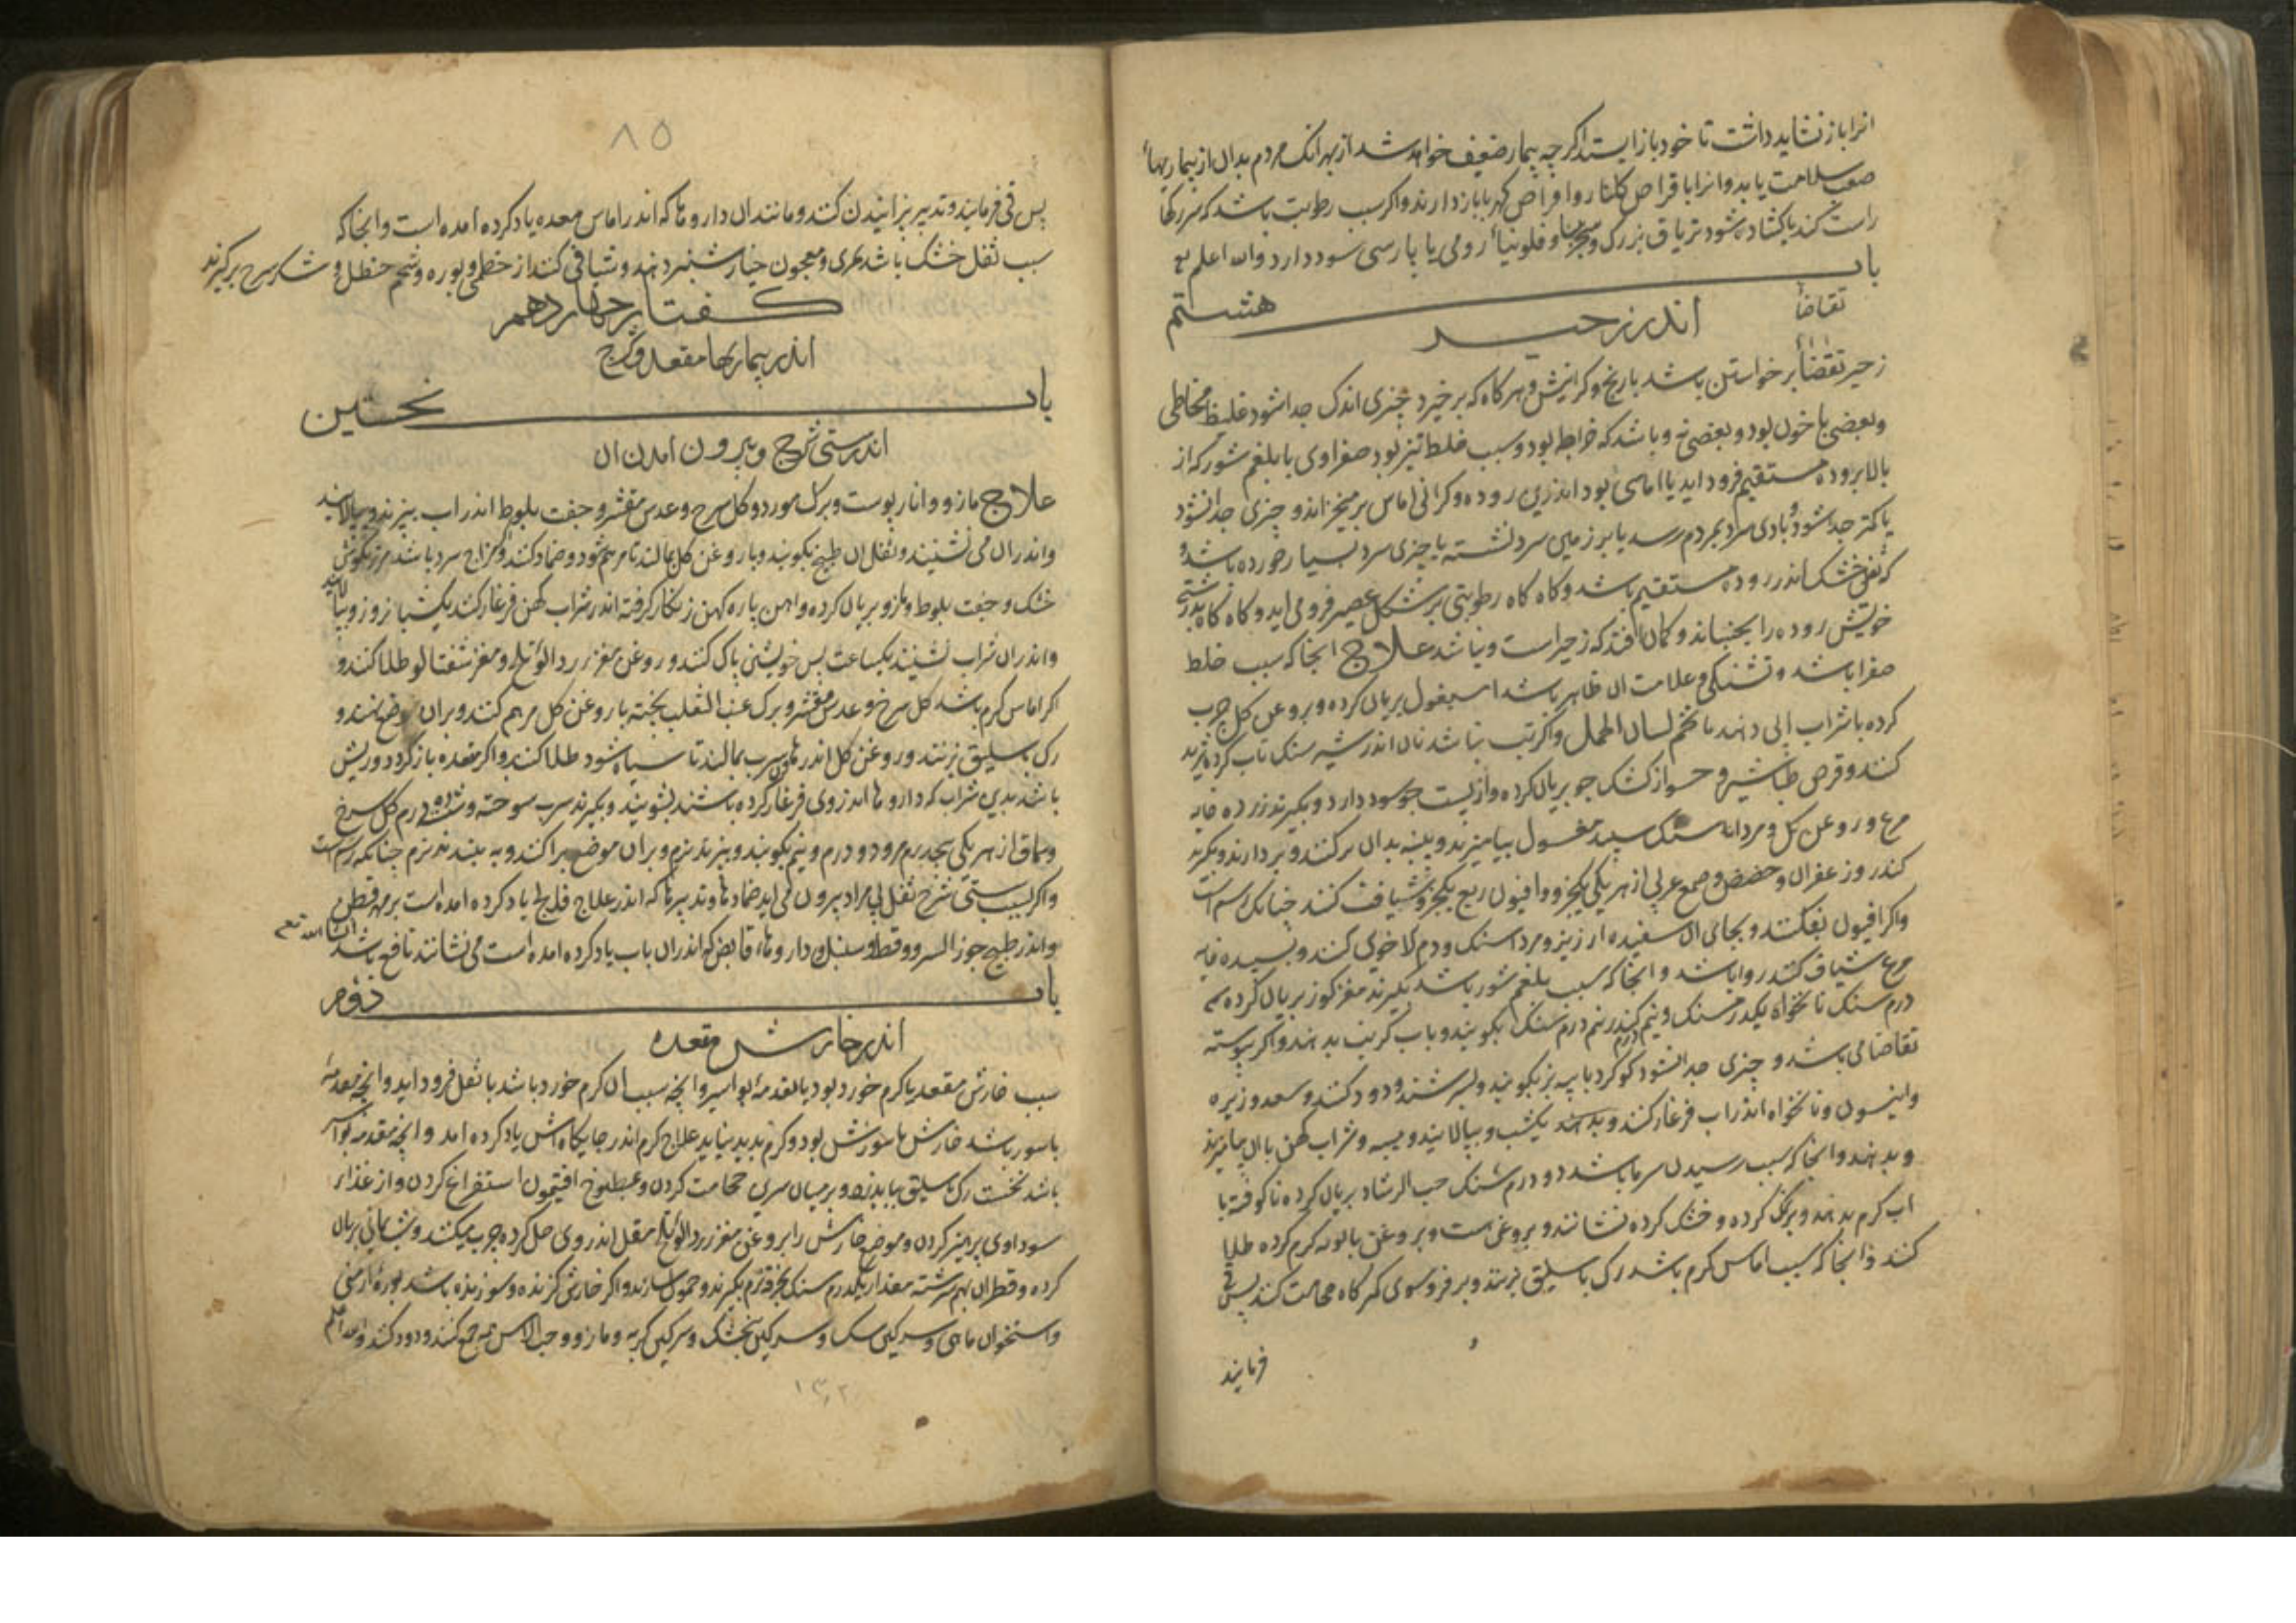 انرا باز نشاید داشت تا خود باز ایستد اکر چه بیمار ضعیف خواهد شد از بهر انک مردم بدان از بیماریهاء
صعب سلامت یابد و انرا باقراص کلنار و اقراص کهربا باز دارند و اکر سبب رطوبت باشد که سر رکها
راست کند یا کشاده شود تریاق بزرک و سجزینا و فلونیاء رومی یا پارسی سود دارد والله اعلم
باب هشتم
تقاضا
اندر زحیر
زحیر تقضاء برخواستن باشد با رنج و کرانش و هرکاه که برخیزد چیزی اندک جدا شود غلیظ مخاطی
و بعضی با خون بود و بعضی نه و باشد که خراطه بود و سبب خلط تیز بود صفراوی یا بلغم شور که از
بالا بروده مستقیم فرود اید یا اماسی بود اندرین روده و کرانی اماس برمیخیزاند و چیزی جدا نشود
یا کمتر جدا شود و بادی سرد بمردم رسد یا بر زمین سرد نشسته یا چیزی سرد بسیار خورده باشد و
که ثفل خشک اندر روده مستقیم باشد و کاه کاه رطوبتی بر شکل عصیر فرو می اید و کاه کاه بدرشتی
خویش روده را بجنباند و کمان افتد که زحیر است و نباشد علاج انجا که سبب خلط
صفرا باشد و تشنکی و علامت ان ظاهر باشد اسبغول بریان کرده و بروغن کل چرب
کرده با شراب ابی دهند یا تخم لسان الحمل و اکر تب نباشد نان اندر شیر سنک تاب کرده ثرید
کنند و قرص طباشیر و حسو از کشک جو بریان کرده و از پست جو سود دارد و بکیرند زرده خایه
مرغ و روغن کل و مردا سنک سپید مغسول بیامیزند و پنبه بدان تر کنند و بردارند و بکیرند
کندر و زعفران و حضض و صمغ عربی از هر یکی یکجزو و افیون ربع یکجزو شیاف کنند چنانک رسم است
و اکر افیون نفکنند و بجای ان سفیده ارزیز و مردا سنک و دم الاخوین کنند و بسپیده خایه
مرغ شیاف کنند روا باشد و انجا که سبب بلغم شور باشد بکیرند مغز کوز بریان کرده سه
درم سنک نانخواه یکدرمسنک و نیم کندر نیم درم سنک بکوبند و باب کرنب بدهند و اکر پیوسته
درم
تقاضا می باشد و چیزی جدا نشود کوکرد با پیه بز بکوبند و بسرشند و دود کنند و سعد و زیره
و انیسون و نانخواه اندر اب فرغار کنند و بدهند یکشب و بپالایند و پسه و شراب کهن با ان بیامیزند
و بدهند و انجا که سبب رسیدن سرما باشد دو درم سنک حب الرشاد بریان کرده ناکوفته با
اب کرم بدهند و بر نمک کرده و خشک کرده نشانند و بروغن است و بروغن بابونه کرم کرده طلا
کنند و انجا که سبب اماس کرم باشد رک باسلیق بزنند و بر فروسوی کمرکاه حجامت کنند پس قی
فرمایند
۸۵
پس قی فرمایند و تدبیر پزانیدن کنند و مانند ان داروها که اندر اماس معده یاد کرده امده است و انجا که
سبب ثفل خشک باشد مری و معجون خیار شنبر دهند و شیافی کنند از خطمی و بوره و شحم حنظل و شکر سرخ برکیرند
کفتار چهاردهم
اندر بیماریها مقعد و شرج
باب نخستین
اندر سستی شرج و بیرون امدن ان
علاج مازو و انار پوست و برک مورد و کل سرخ و عدس مقشر و جفت بلوط اندر اب بپزند و بپالایند
و اندر ان می نشینند و ثفل ان طبیخ بکوبند و با روغن کل بمالند تا مرهم شود و ضماد کنند و اکر مزاج سرد باشد مرزنکوش
خشک و جفت بلوط و مازو بریان کرده و اهن پاره کهن زنکار کرفته اندر شراب کهن فرغار کنند یکشبانروز و بپالایند
و اندر ان شراب نشینند یکساعت پس خویشتن پاک کنند و روغن مغز زردالوء تلخ و مغز شفتالو طلا کنند و
اکر اماس کرم باشد کل سرخ و عدس مقشر و برک عنب الثعلب پخته با روغن کل مرهم کنند و بران موضع نهند و
رک باسلیق بزنند و روغن کل اندر هاون سرب بمالند تا سیاه شود طلا کنند و اکر مقعده باز کردد و ریش
باشد بدین شراب که داروها اندر وی فرغار کرده باشند بشویند و بکیرند سرب سوخته و شسته ده درم کل سرخ
و سماق از هر یکی پنجدرم مرو دو درم و نیم بکوبند و بپزند نرم و بران موضع پراکنند و به بندند نرم چنانکه رسم است
و اکر بسبب سستی شرج ثفل بی مراد بیرون می اید ضمادها و تدبیرها که اندر علاج فالج یاد کرده امده است بر مهره قطن
و اندر طبیخ جوز السرو و قسط و سنبل و داروهاء قابض که اندران باب یاد کرده امده است می نشانند نافع باشد انشا الله تعالی
باب دوم
اندر خارش مقعده
سبب خارش مقعد یا کرم خورد بود یا مقدمهٔ بواسیر و انچه سبب ان کرم خورد باشد با ثفل فرود اید و انچه مقدمهٔ
باسور باشد خارش با سوزش بود و کرم پدید نیاید علاج کرم اندر جایکاه اش یاد کرده امد و انچه مقدمه بواسیر
باشد نخست رک باسلیق بباید زد و بر میان سرین حجامت کردن و بمطبوخ افتیمون استفراغ کردن و از غذاء
سوداوی پرهیز کردن و موضع خارش را بروغن مغز زردالوء تلخ مقل اندر وی حل کرده چرب میکنند و شب یمانی بریان
کرده و قطران بهم سرشته مقدار یکدرم سنک بخرقه نرم بکیرند و حمول سازند و اکر خارش کزنده و سوزنده باشد بوره ارمنی
و استخوان ماهی و سرکین سک و سرکین بنجشک و سرکین کربه و مازو و حب الاس همه جمع کنند و دود کنند والله اعلم
۱۳۲